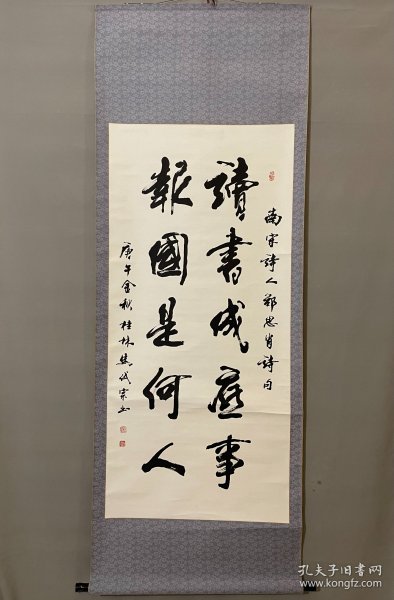 南宋詩人鄭思肖詩句
讀書成底事
報國是何人
庚午金秋桂林
孔夫子旧书网
www.kongfz.com